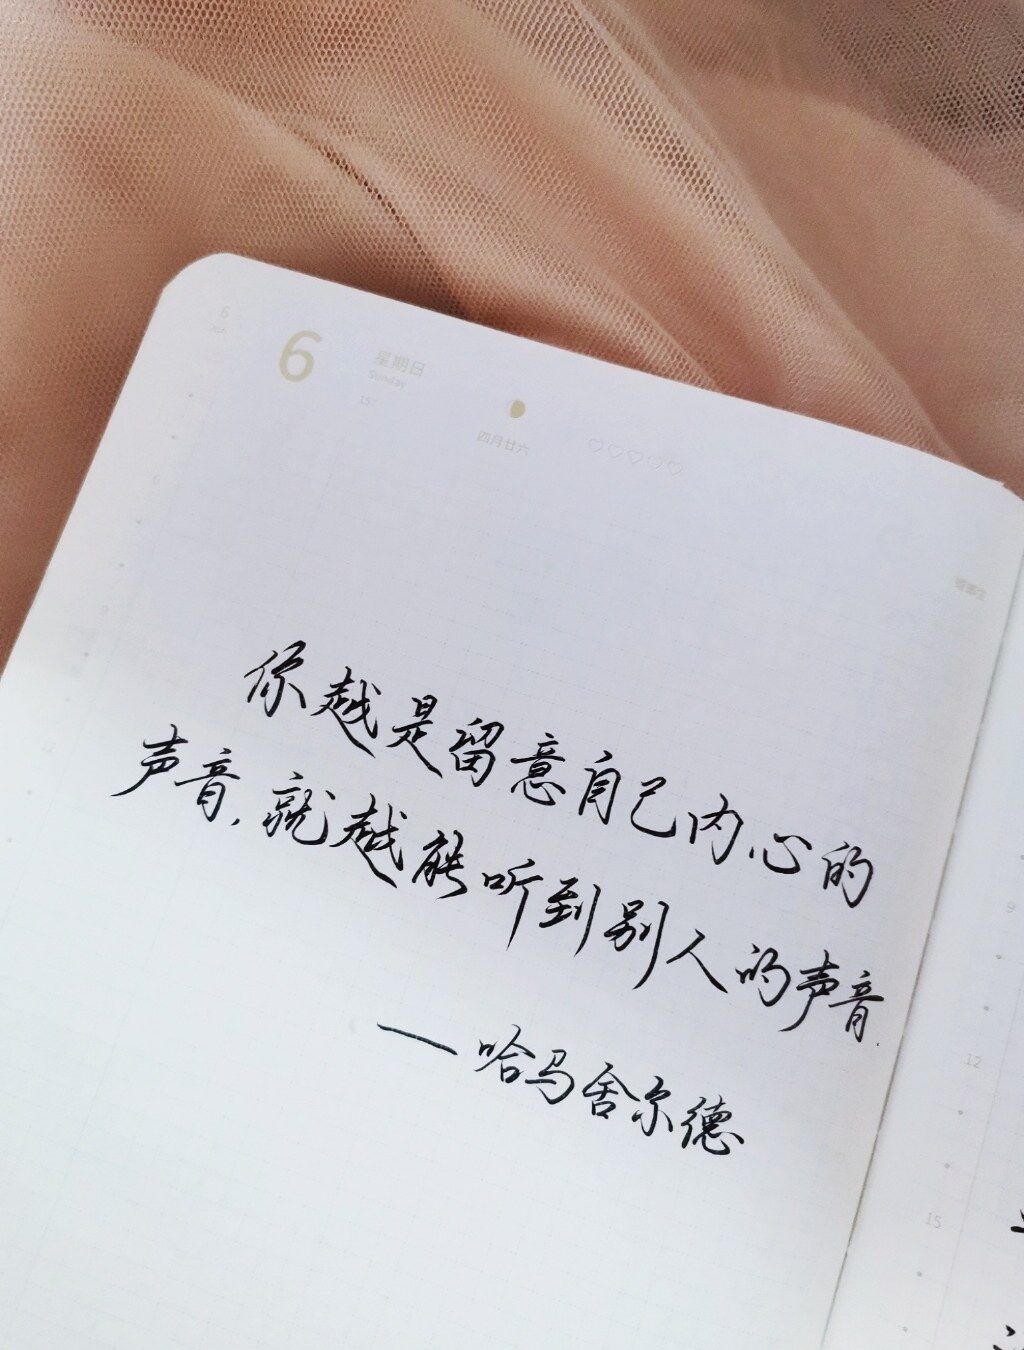 6
JUN
6
星期日
Sunday
157
四月廿六
你越是留意自己内心的
声音,就越能听到别人的声音.
——哈马舍尔德
9
12
15